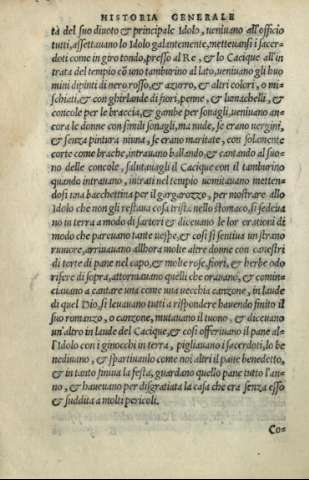 HISTORIA GENERALE
tà del suo diueto & principale Idolo, ueniuano all'officio
tutti, assettauano lo Idolo galantemente, metteuansi i sacer-
doti come in giro tondo, presso al Re, & lo Cacique all'in
trata del tempio cõ uno tamburino al lato, ueniuano gli huo
mini dipinti di nero, rosso, & aziorro, & altri colori, o mi-
schiati, & con ghirlande di fiori, penne, & lumachelli, &
concole per le braccia, & gambe per sonagli, ueniuano an-
cora le donne con simili sonagli, ma nude, se erano uergini,
& senza pintura niuna, se erano maritate, con solamente
corte come brache, intrauano ballando, & cantando al suo-
no delle concole, salutauagli il Cacique con il tamburino
quando intrauano, intrati nel tempio uomitauano metten-
dosi una bacchettina per il gorgarozzo, per mostrare allo
Idolo che non gli restaua cosa trista nello stomaco, si sedeua
no in terra a modo di sartori & diceuano le lor orationi di
modo che pareuano tante uespe, & così si sentiua un strano
rumore, arriuauano allhora molte altre donne con canestri
di torte di pane nel capo, & molte rose, fiori, & herbe odo
rifere di sopra, attorniauano quelli che orauano, & comin-
ciauano a cantare una come una uecchia canzone, in laude
di quel Dio, si leuauano tutti a rispondere hauendo finito il
suo romanzo, o canzone, mutauano il tuono, & diceuano
un'altro in laude del Cacique, & così offeriuano il pane al-
l'Idolo con i ginocchi in terra, pigliauano i sacerdoti, lo be
nediuano, & spartiuanlo come noi altri il pane benedetto,
& in tanto finiua la festa, guardano quello pane tutto l'an-
no, & haueuano per disgratiata la casa che era senza esso
& suddita a molti pericoli.
Co-